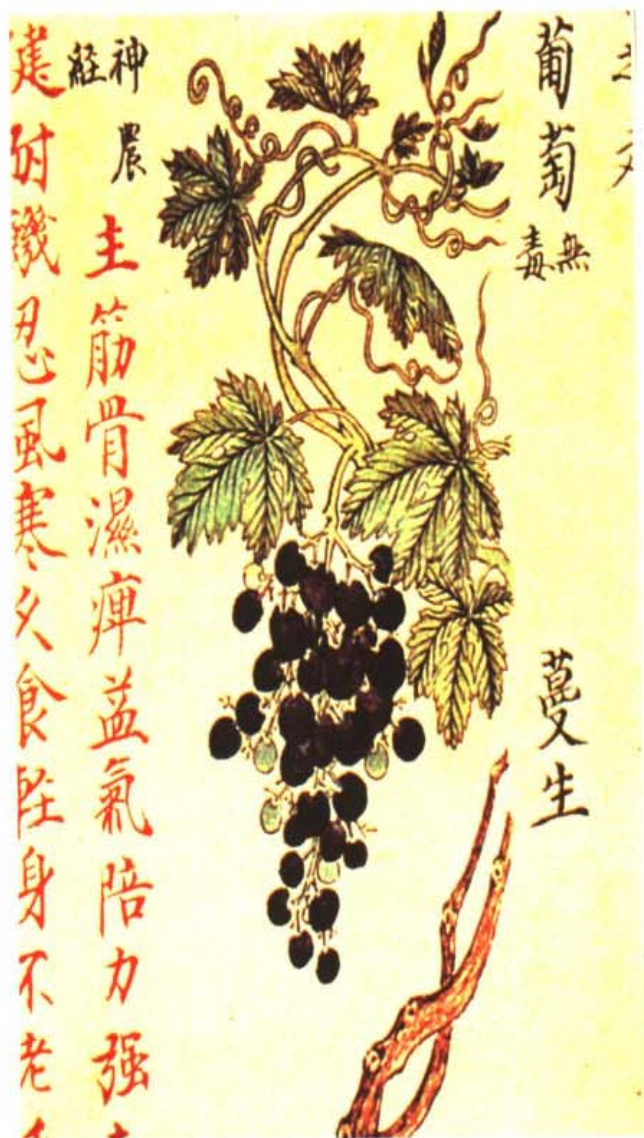 葡萄
無毒
蔓生
神農
經
主筋骨濕痺益氣陪力强
忍風寒久食軽身不老